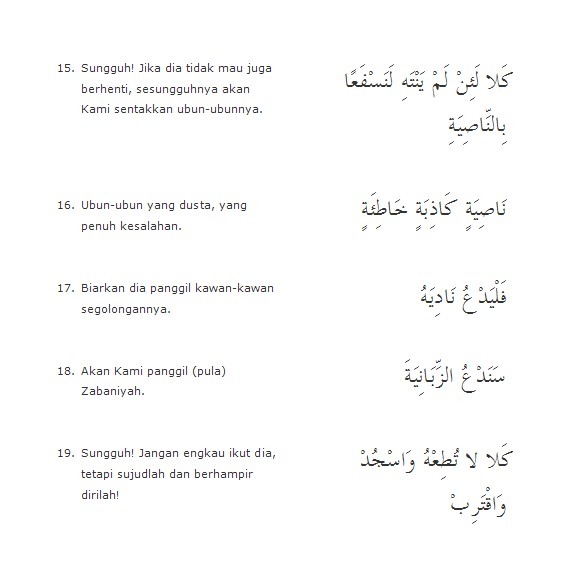 15. Sungguh! Jika dia tidak mau juga
berhenti, sesungguhnya akan
Kami sentakkan ubun-ubunnya.
كَلا لَئِنْ لَمْ يَنْتَهِ لَنَسْفَعًا
بِالنَّاصِيَةِ
16. Ubun-ubun yang dusta, yang
penuh kesalahan.
نَاصِيَةٍ كَاذِبَةٍ خَاطِئَةٍ
17. Biarkan dia panggil kawan-kawan
segolongannya.
فَلْيَدْعُ نَادِيَهُ
18. Akan Kami panggil (pula)
Zabaniyah.
سَنَدْعُ الزَّبَانِيَةَ
19. Sungguh! Jangan engkau ikut dia,
tetapi sujudlah dan berhampir
dirilah!
كَلا لا تُطِعْهُ وَاسْجُدْ
وَاقْتَرِبْ